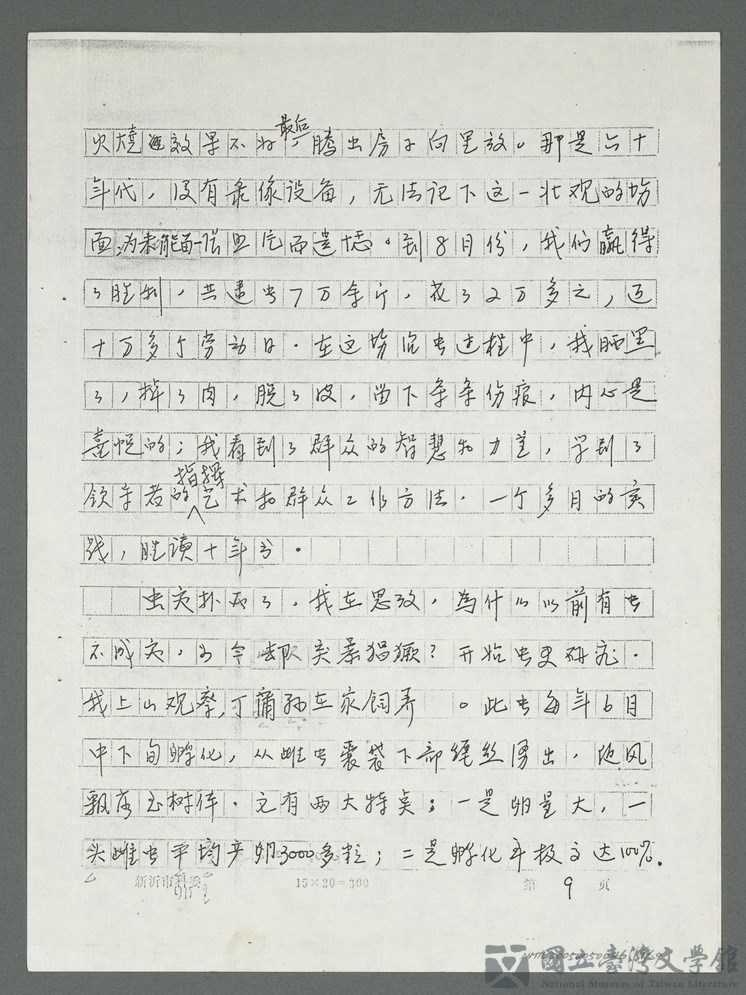 火燒效果不好，最后腾出房子向里放。那是六十
年代，没有录像设备，无法记下这一壮观的场
面，为未能留一张照片而遗憾。到8月份，我们赢得
了胜利，共逮虫7万余斤，花了2万多元，近
十万多个劳动日。在这场治虫过程中，我晒黑
了，掉了肉，脱了皮，留下条条伤痕，内心是
喜悦的；我看到了群众的智慧和力量，学到了
领导者的指挥艺术和群众工作方法。一个多月的实
践，胜读十年书。
虫灾扑灭了，我在思考，為什么以前有虫
不成灾，如今却突袭猖獗？开始虫史研究。
我上山观察，丁蒲孙在家饲养。此虫每年6月
中下旬孵化，从雌虫囊袋下部缍丝涌出，随风
飘落至树体。它有两大特点：一是卵量大，一
头雌虫平均产卵3000多粒；二是孵化率极高达100%。
新沂市科委
15×20=300
第 9 页
國立臺灣文學館
National Museum of Taiwan Literature